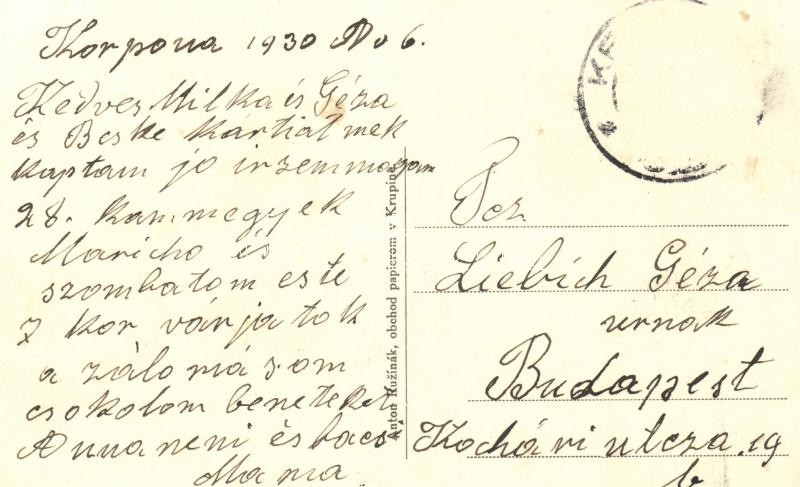 Korpona 1930 No 6.
Kedves Milka és Géza
és Beske kártiátmek
kaptam jo irzem magam
28. kammegyek
Maricho és
szombatom este
7 kor várjatok
a zálomásom
csokolom beneteket
Annaneni és bacsi
Mama
Anton Kužinák, obchod papierom v Krupine.
KR
Liebich Géza
urnak
Budapest
Kochári utcza. 19